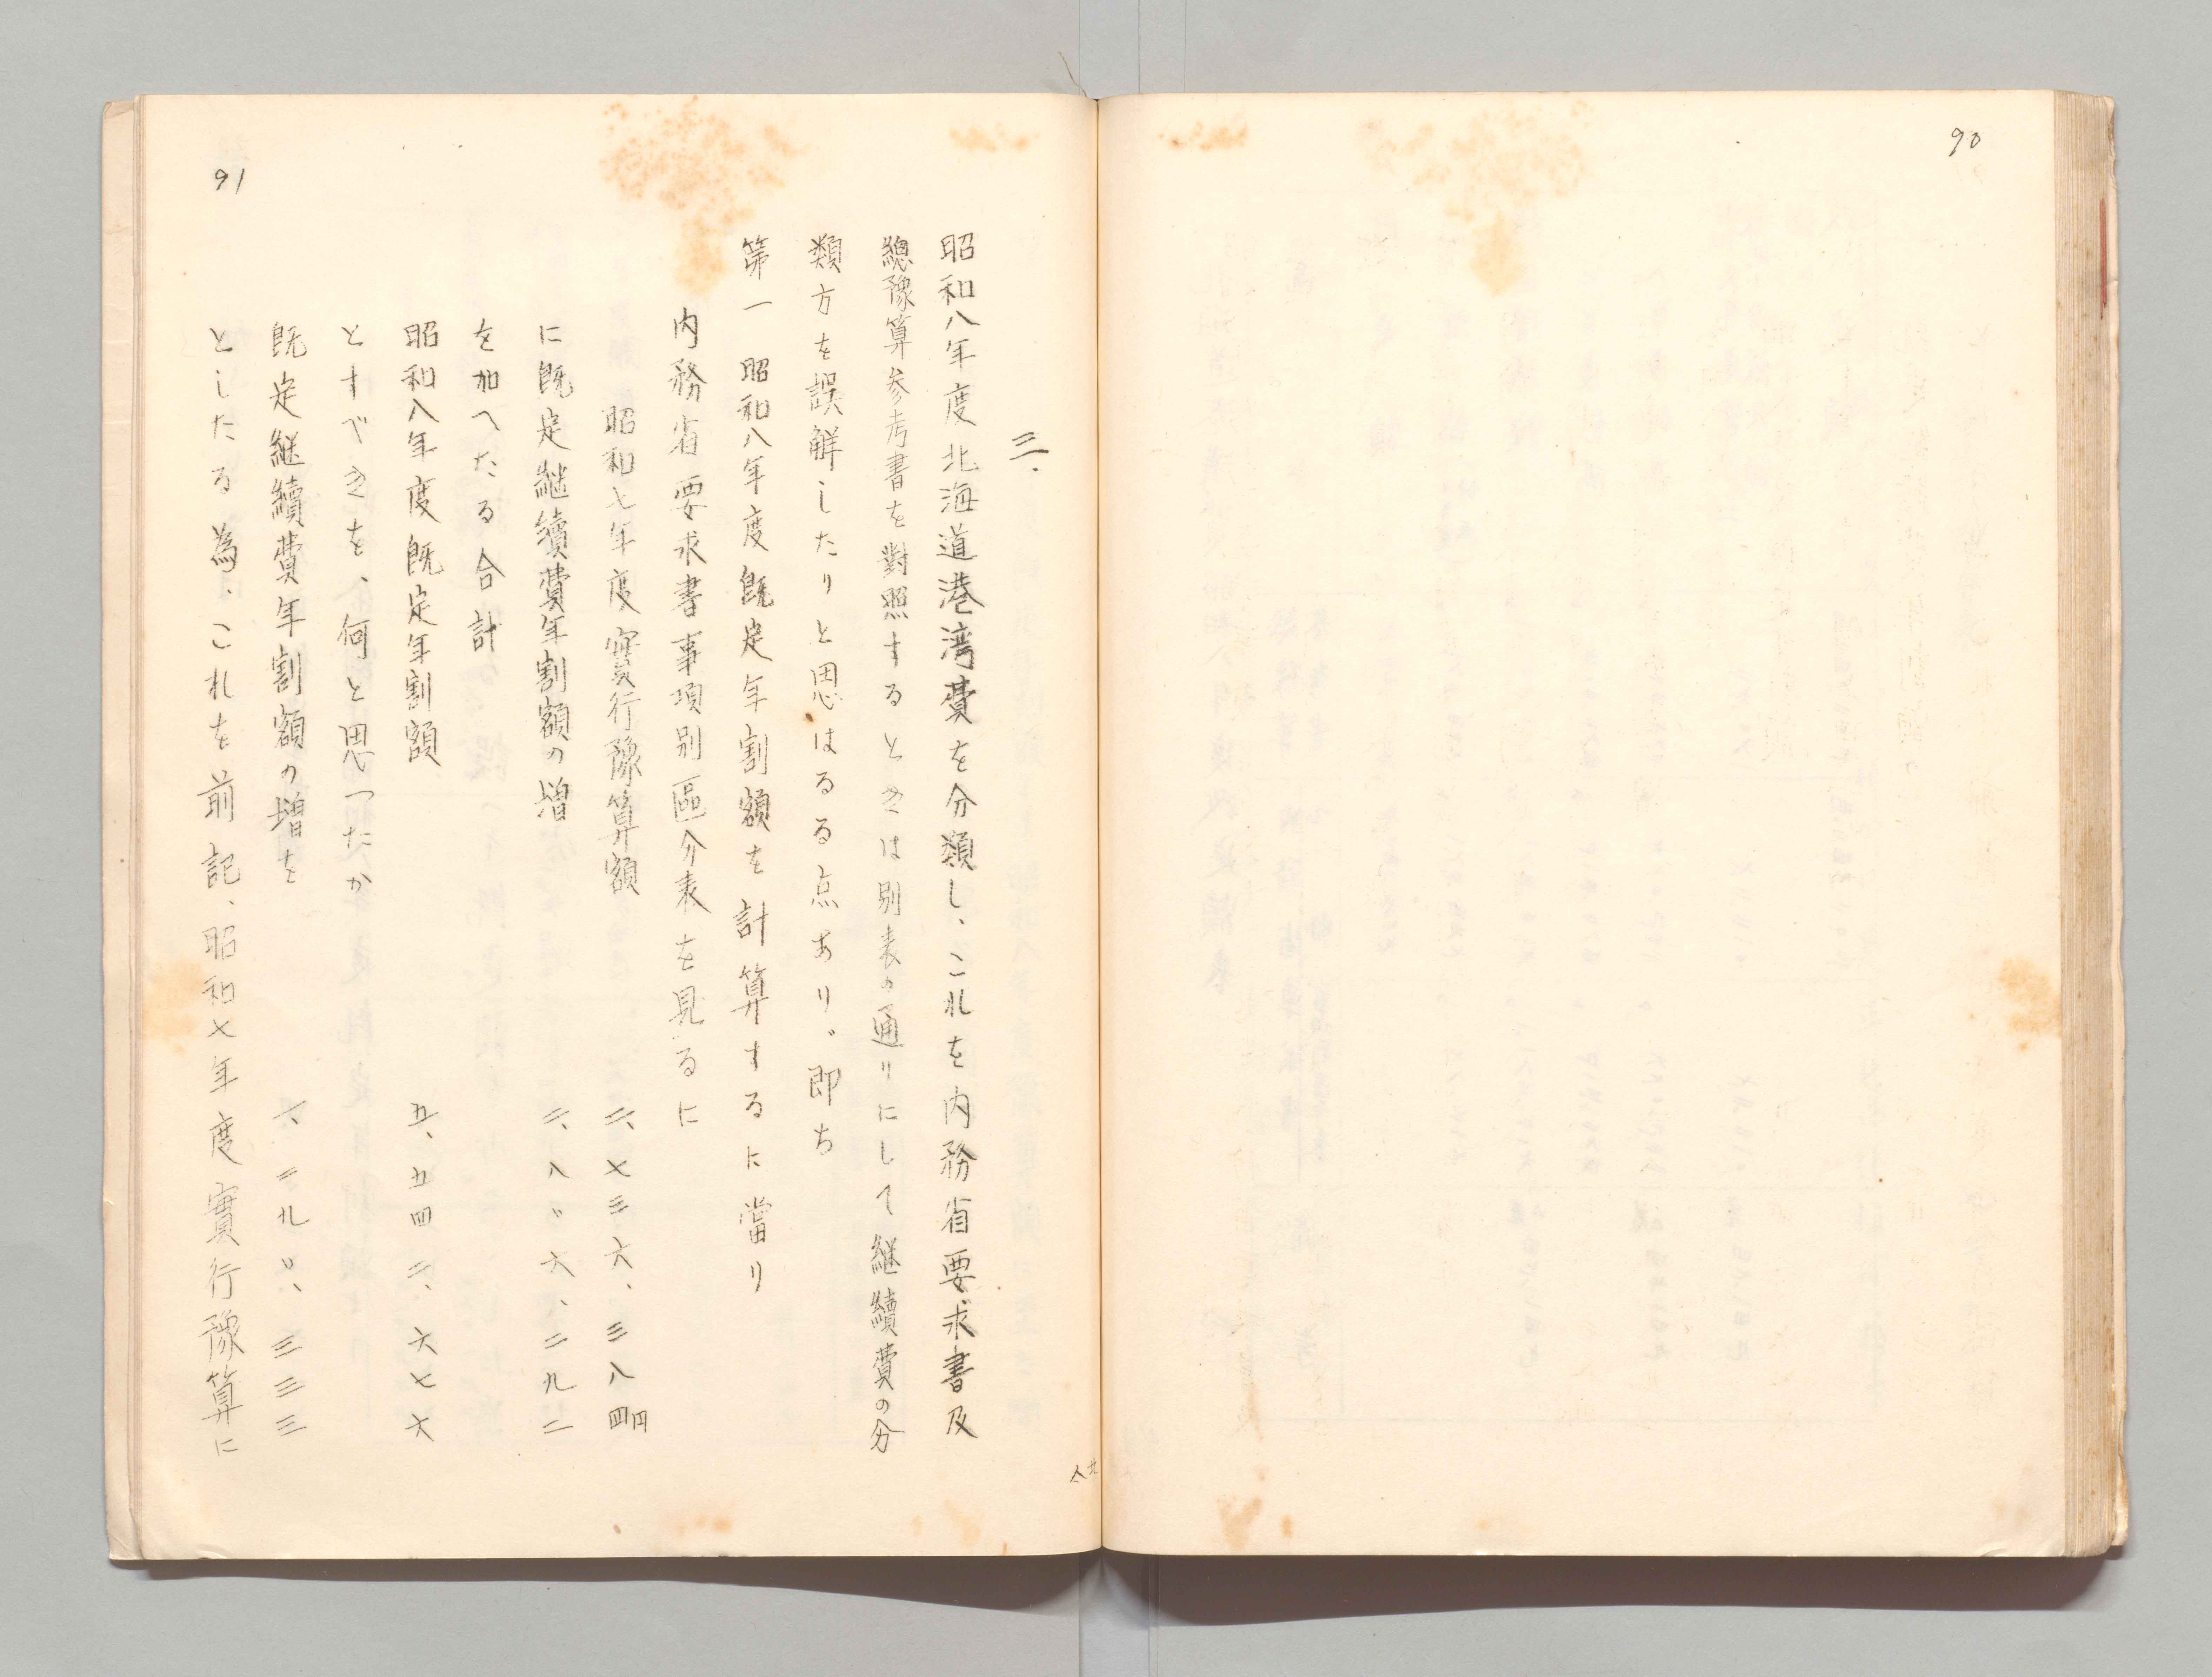 90
三、
昭和八年度北海道港湾費を分類し、これを内務省要求書及
總豫算参考書を對照するときは別表の通りにして継續費の分
類方を誤解したりと思はるる点あり。即ち
第一 昭和八年度既定年割額を計算するに當り
内務省要求書事項別區分表を見るに
昭和七年度實行豫算額 二、七三六、三八四円
に既定継續費年割額の増 二、八〇六、二九二
を加へたる合計
昭和八年度既定年割額 五、五四二、六七六
とすべきを、何と思つたか
既定継續費年割額の増を 一、二九〇、三三三
としたる為、これを前記、昭和七年度實行豫算に
91